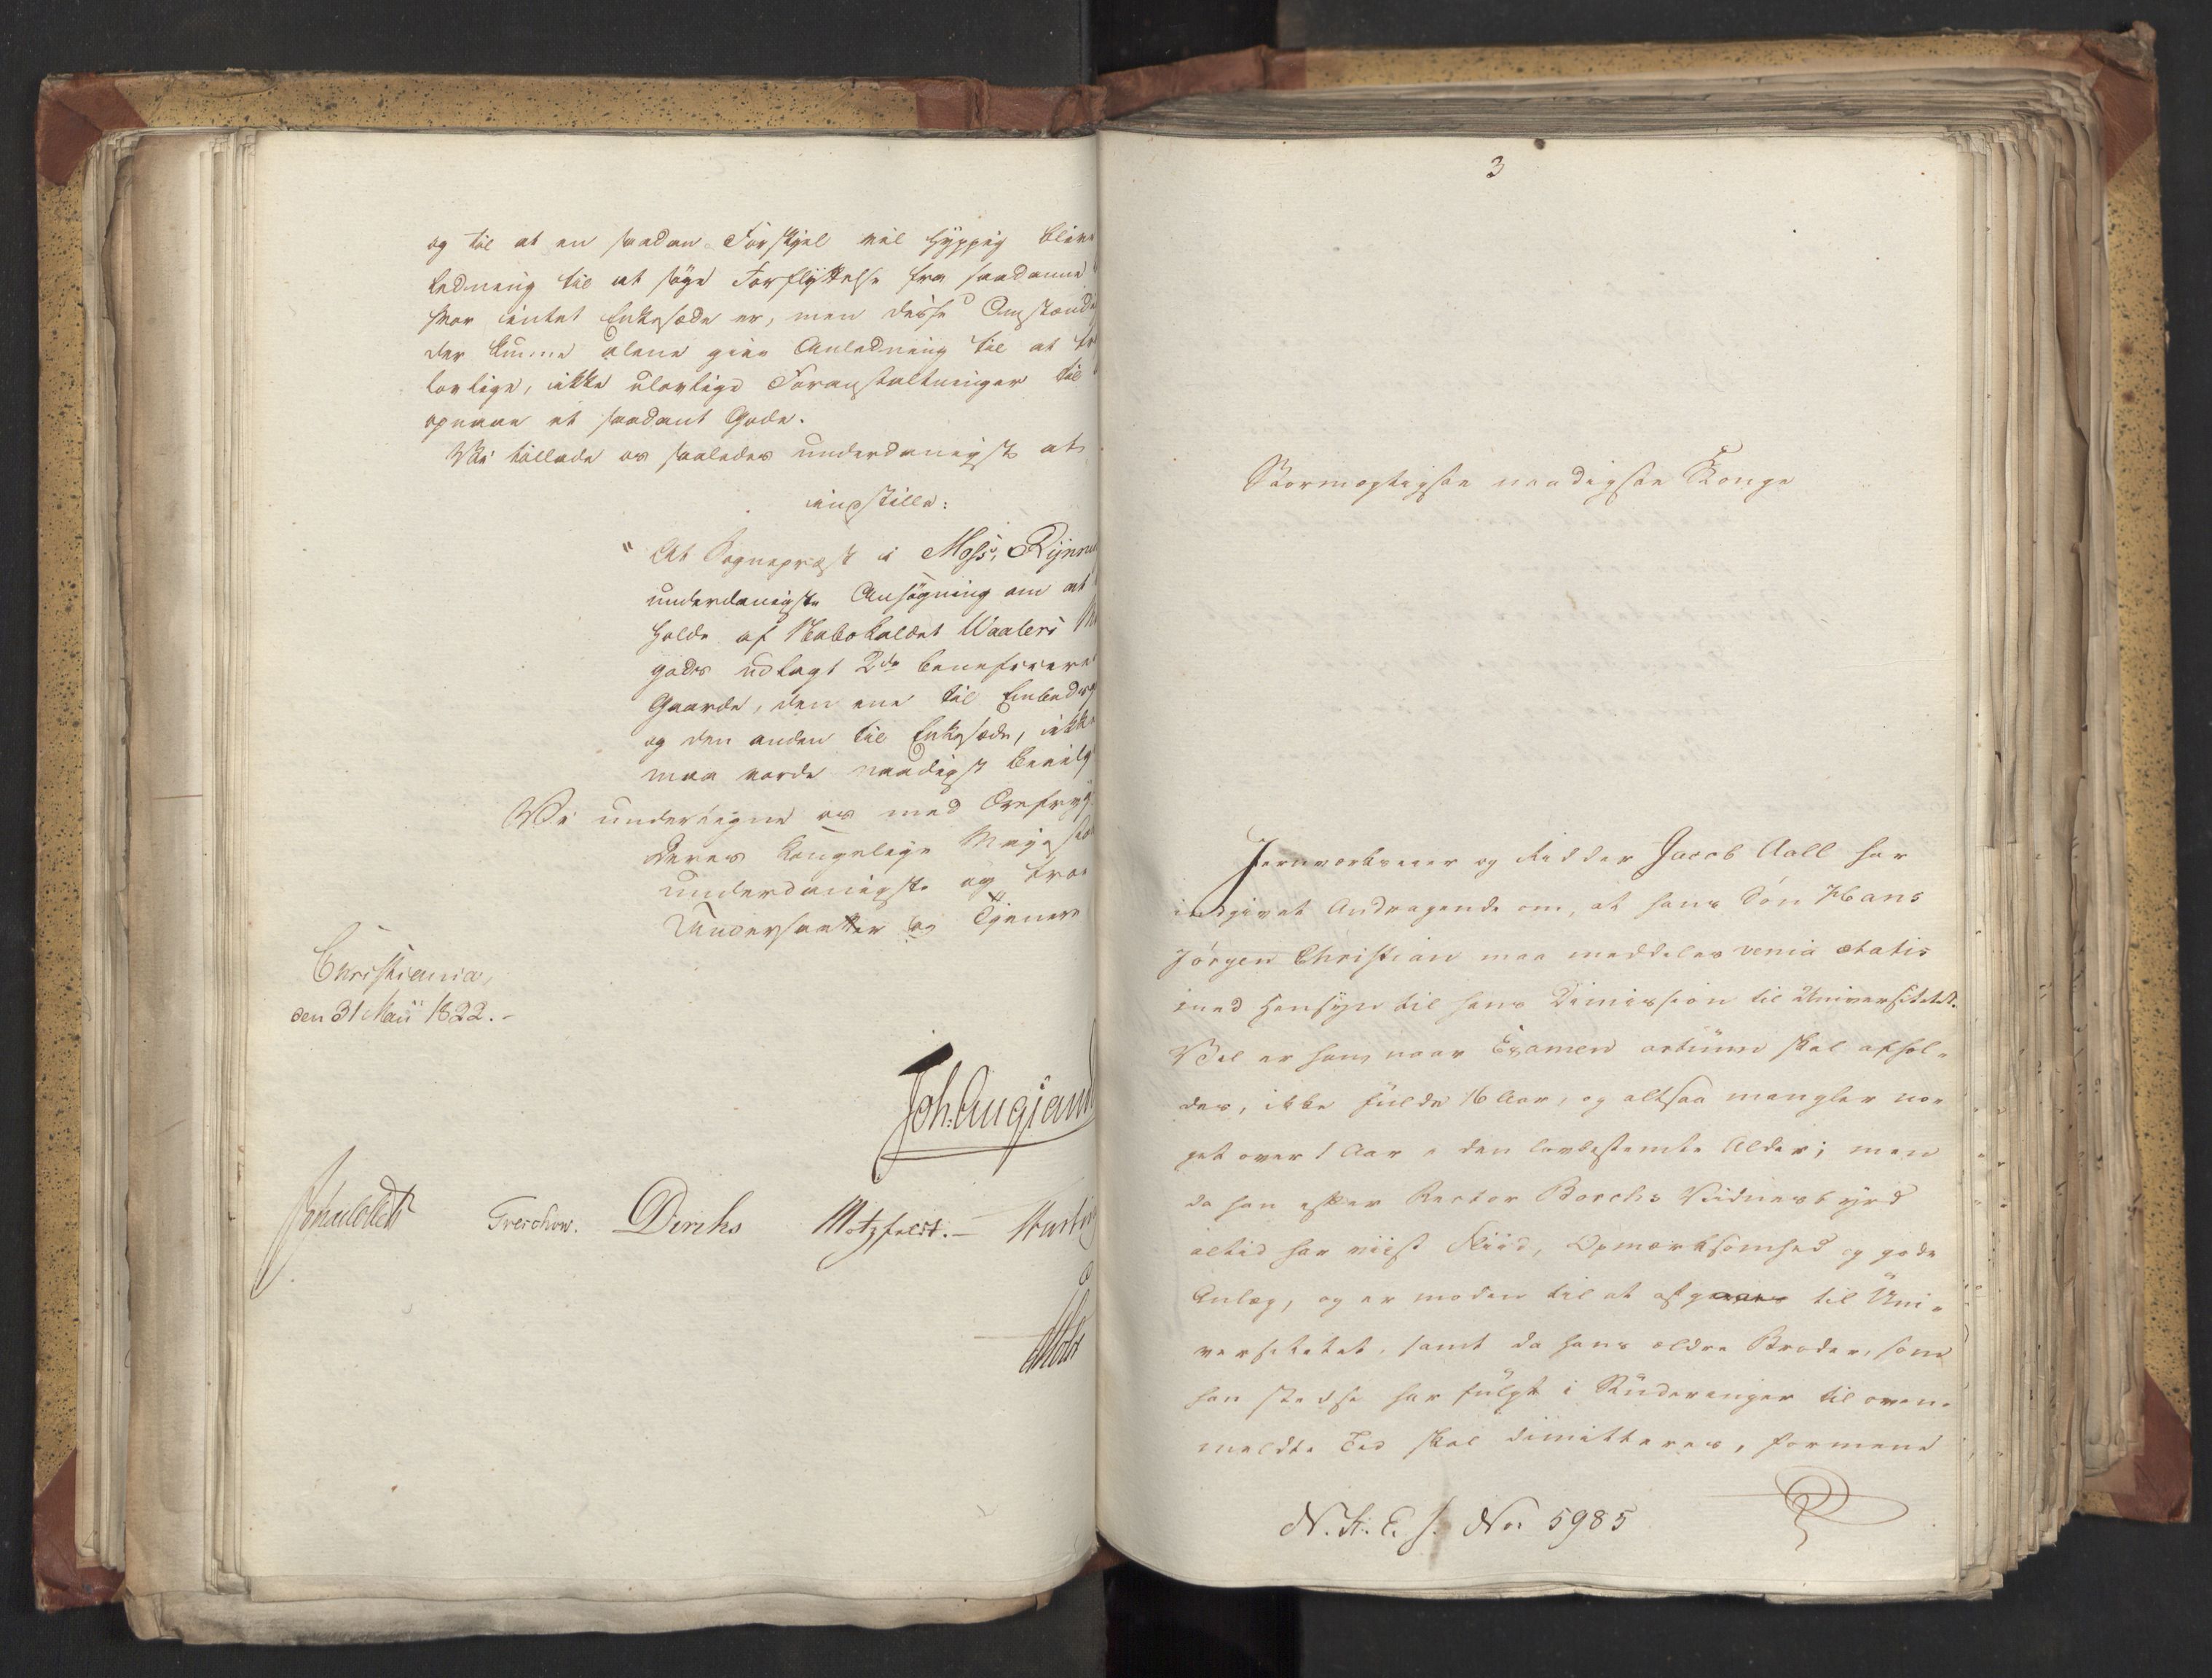 og til at en saadan Forskjel vil hyppig blive
ledning til at søge Forflyttelse fra saadanne
hvor intet Enkesæde er, men disse Omstændig
der kunne alene give Anledning til at
lovlige, ikke ulovlige Foranstaltninger til
opnaae et saadant Gode.
Vi tillade os saaledes underdanigst at
indstille:
"At Sognepræst i Moss, Rynni
underdanigste Ansøgning om at
holde af Nabokaldet Waalers
gods udlagt 2de beneficerede
Gaarde, den ene til Embeds
og den anden til Enkesæde, ikke
maa vorde naadigst bevilg
Vi undertegne os med Ærefrygt
Deres Kongelige Majestæt
underdanigste og troe
Undersaatter og Tjenere
Christiania,
den 31 Maii 1822.-
Joh. Aug Sand
Treschow. Diriks Motzfeldt.-
Holst
3
Stormægtigste naadigste Konge
Jernværkseier og Ridder Jacob Aall har
indgivet Andragende om, at hans Søn Hans
Jörgen Christian maa meddeles venia ætatis
med Hensyn til hans Dimission til Universitetet.
Vel er han, naar Examen artium skal afhol-
des, ikke fulde 16 Aar, og altsaa mangler no-
get over 1 Aar i den lovbestemte Alder; men
da han efter Rector Borchs Vidnesbyrd
altid har viist Fliid, Opmærksomhed og gode
Anlæg, og er moden til at afgaae til Uni-
versitetet, samt da hans ældre Broder, som
han stedse har fulgt i Studeringer til oven-
meldte Tid skal dimitteres, formene
N. A. E. J. No 5985